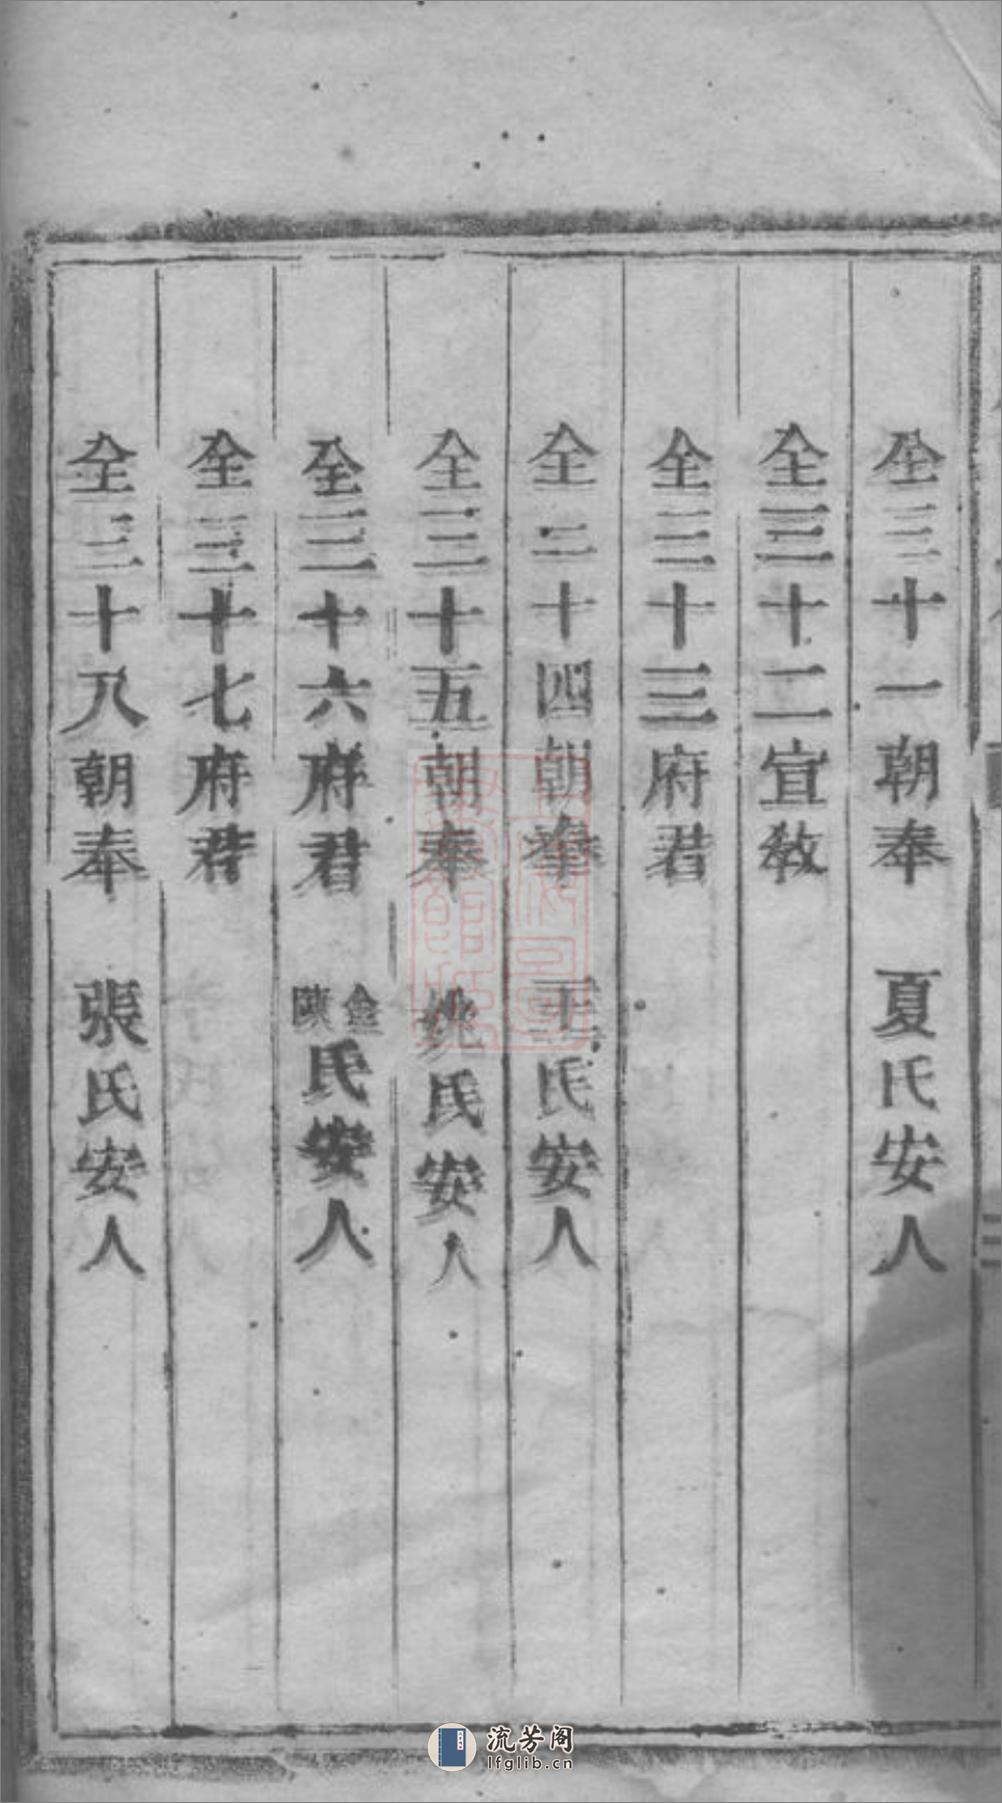 全三十一朝奉　夏氏安人
全三十二宣教
全三十三府君
全三十四朝奉　王氏安人
全三十五朝奉　姚氏安人
全三十六府君　金陳氏安人
全三十七府君
全三十八朝奉　張氏安人
流芳阁
lfglib.cn